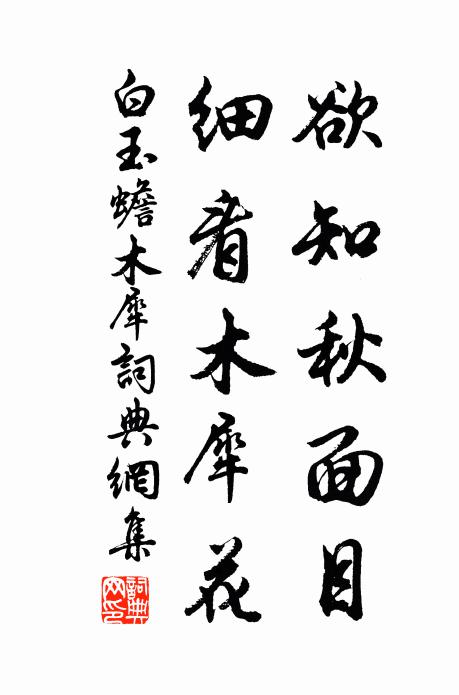 欲知秋面目
细看木犀花
白玉蟾木犀詞典網集
詞典
网印